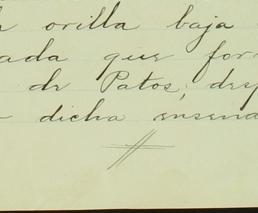 orilla baja
que
de Patos, desp
dicha ensena